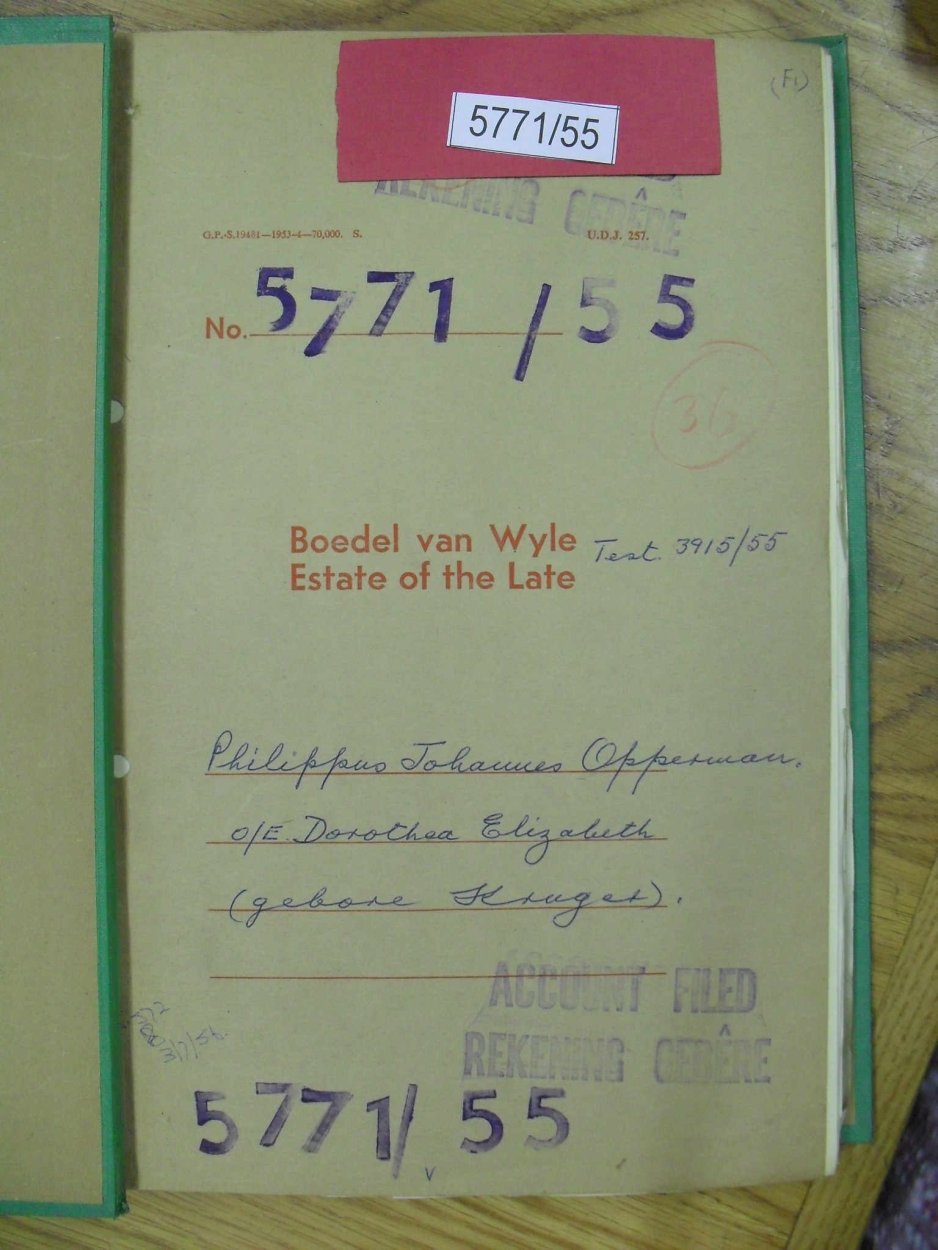 (F1)
5771/55
REKENING GEDÊRE
G.P.-S.19481—1953-4—70,000. S. U.D.J. 257.
No. 5771/55
36
Boedel van Wyle
Estate of the Late
Test. 3915/55
Philippus Johannes Opperman.
o/E Dorothea Elizabeth
(gebore Kruger).
ACCOUNT FILED
REKENING GEDÊRE
5771/55